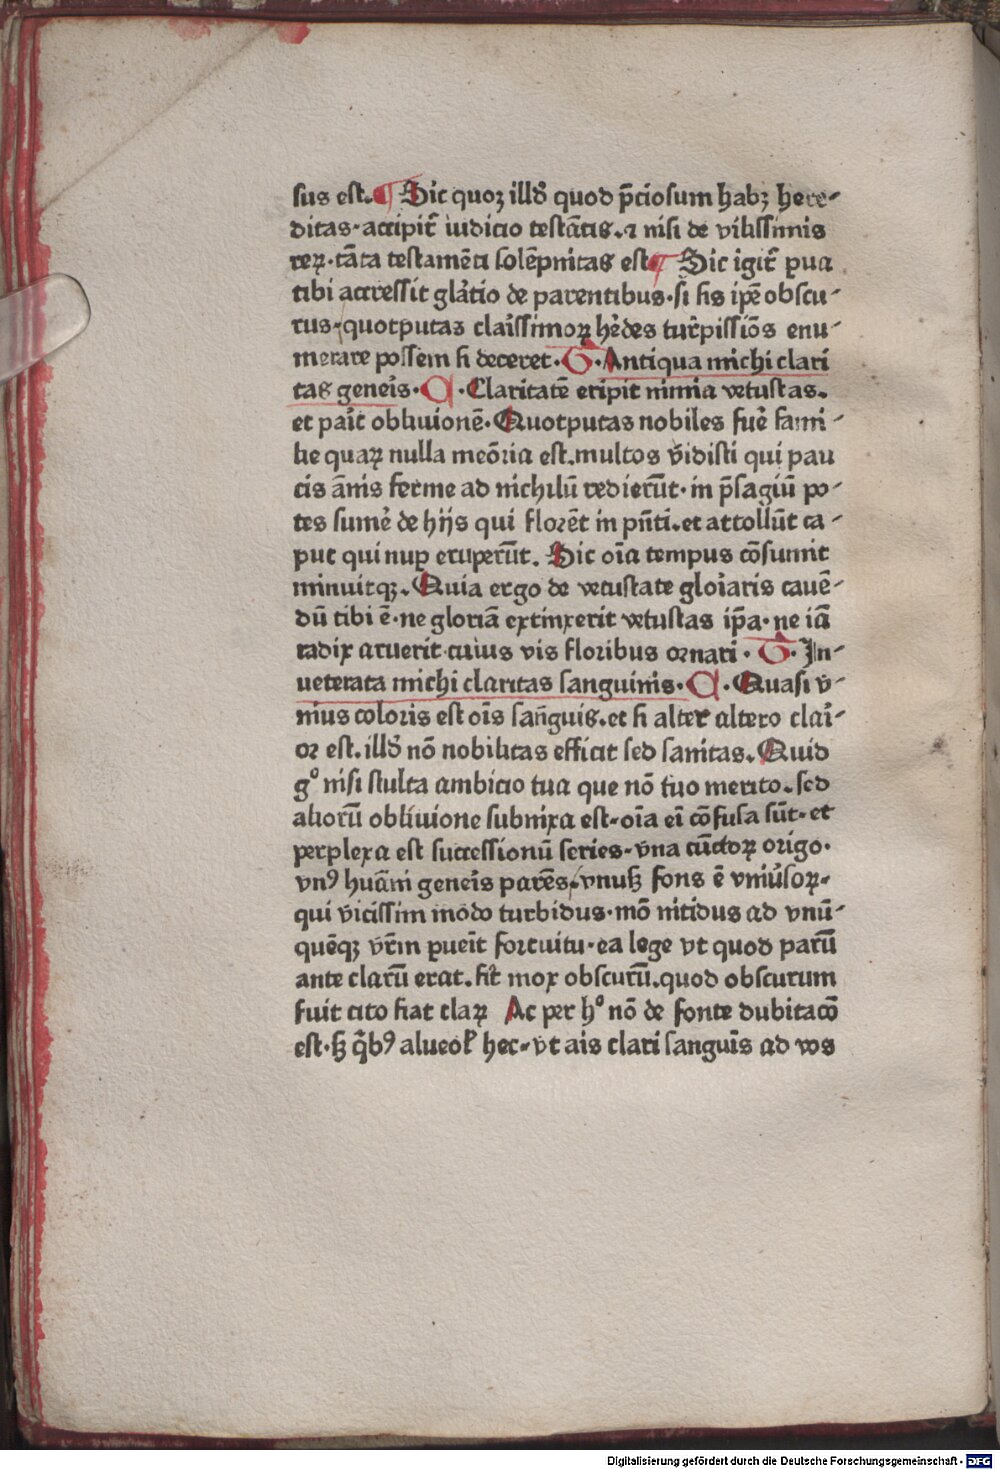 sus est. ¶ Sic quoꝫ illd̄ quod p̄ciosum habꝫ here-
ditas·accipit̄ iudicio testātis.⁊ nisi de vilissimis
reꝝ·tāta testamēti solēpnitas est ¶ Sic igit̄ ꝑua
tibi accessit glātio de parentibus·si hs ip̄e obscu-
rus·quotputas claīssimoꝝ hēdes turpissiōs enu-
merare possem si deceret·G·Antiqua michi clari
tas geneīs·C·Claritatē eripit nimia vetustas.
et paīt obliuionē·Quotputas nobiles fuē fami-
lie quaꝝ nulla meōria est.multos v̄idisti qui pau
cis ānis ferme ad nichilū redierūt·in p̄sagiū po-
tes sumē de hijs qui florēt in pn̄ti.et attollūt ca-
put qui nuꝑ eruperūt. Sic oīa tempus cōsumit
minuitqꝫ. Quia ergo de vetustate gloīaris cauē-
dū tibi ē·ne gloriā extinxerit vetustas ip̄a·ne iā
radix aruerit·cuius vis floribus ornari·G·In-
ueterata michi claritas sanguinis·C·Quasi v̄-
nius coloris est oīs san̄guis.et si alter altero claī-
or est.illd̄ nō nobilitas efficit sed sanitas. Quid
gͦ nisi stulta ambicio tua que nō tuo merito.sed
aliorū obliuione subnixa est·oīa eī cōfusa sūt·et
perplexa est successionū series·v̄na cūctoꝝ origo·
vnꝰ huāni geneīs parēs·vnusꝫ fons ē vniūsoꝝ·
qui v̄icissim modo turbidus·mō nitidus ad vnū-
quēqꝫ v̄rm̄ ꝑueīt fortuitu·ea lege vt quod parū
ante clarū erat.fit̄ mox obscurū.quod obscurum
fuit cito fiat claꝝ Ac per hͦ nō de fonte dubitacō
est·sꝫ q̄bꝰ alueol̄ hec·v̄t ais clari sanguīs ad vos
Digitalisierung gefördert durch die Deutsche Forschungsgemeinschaft - DFG